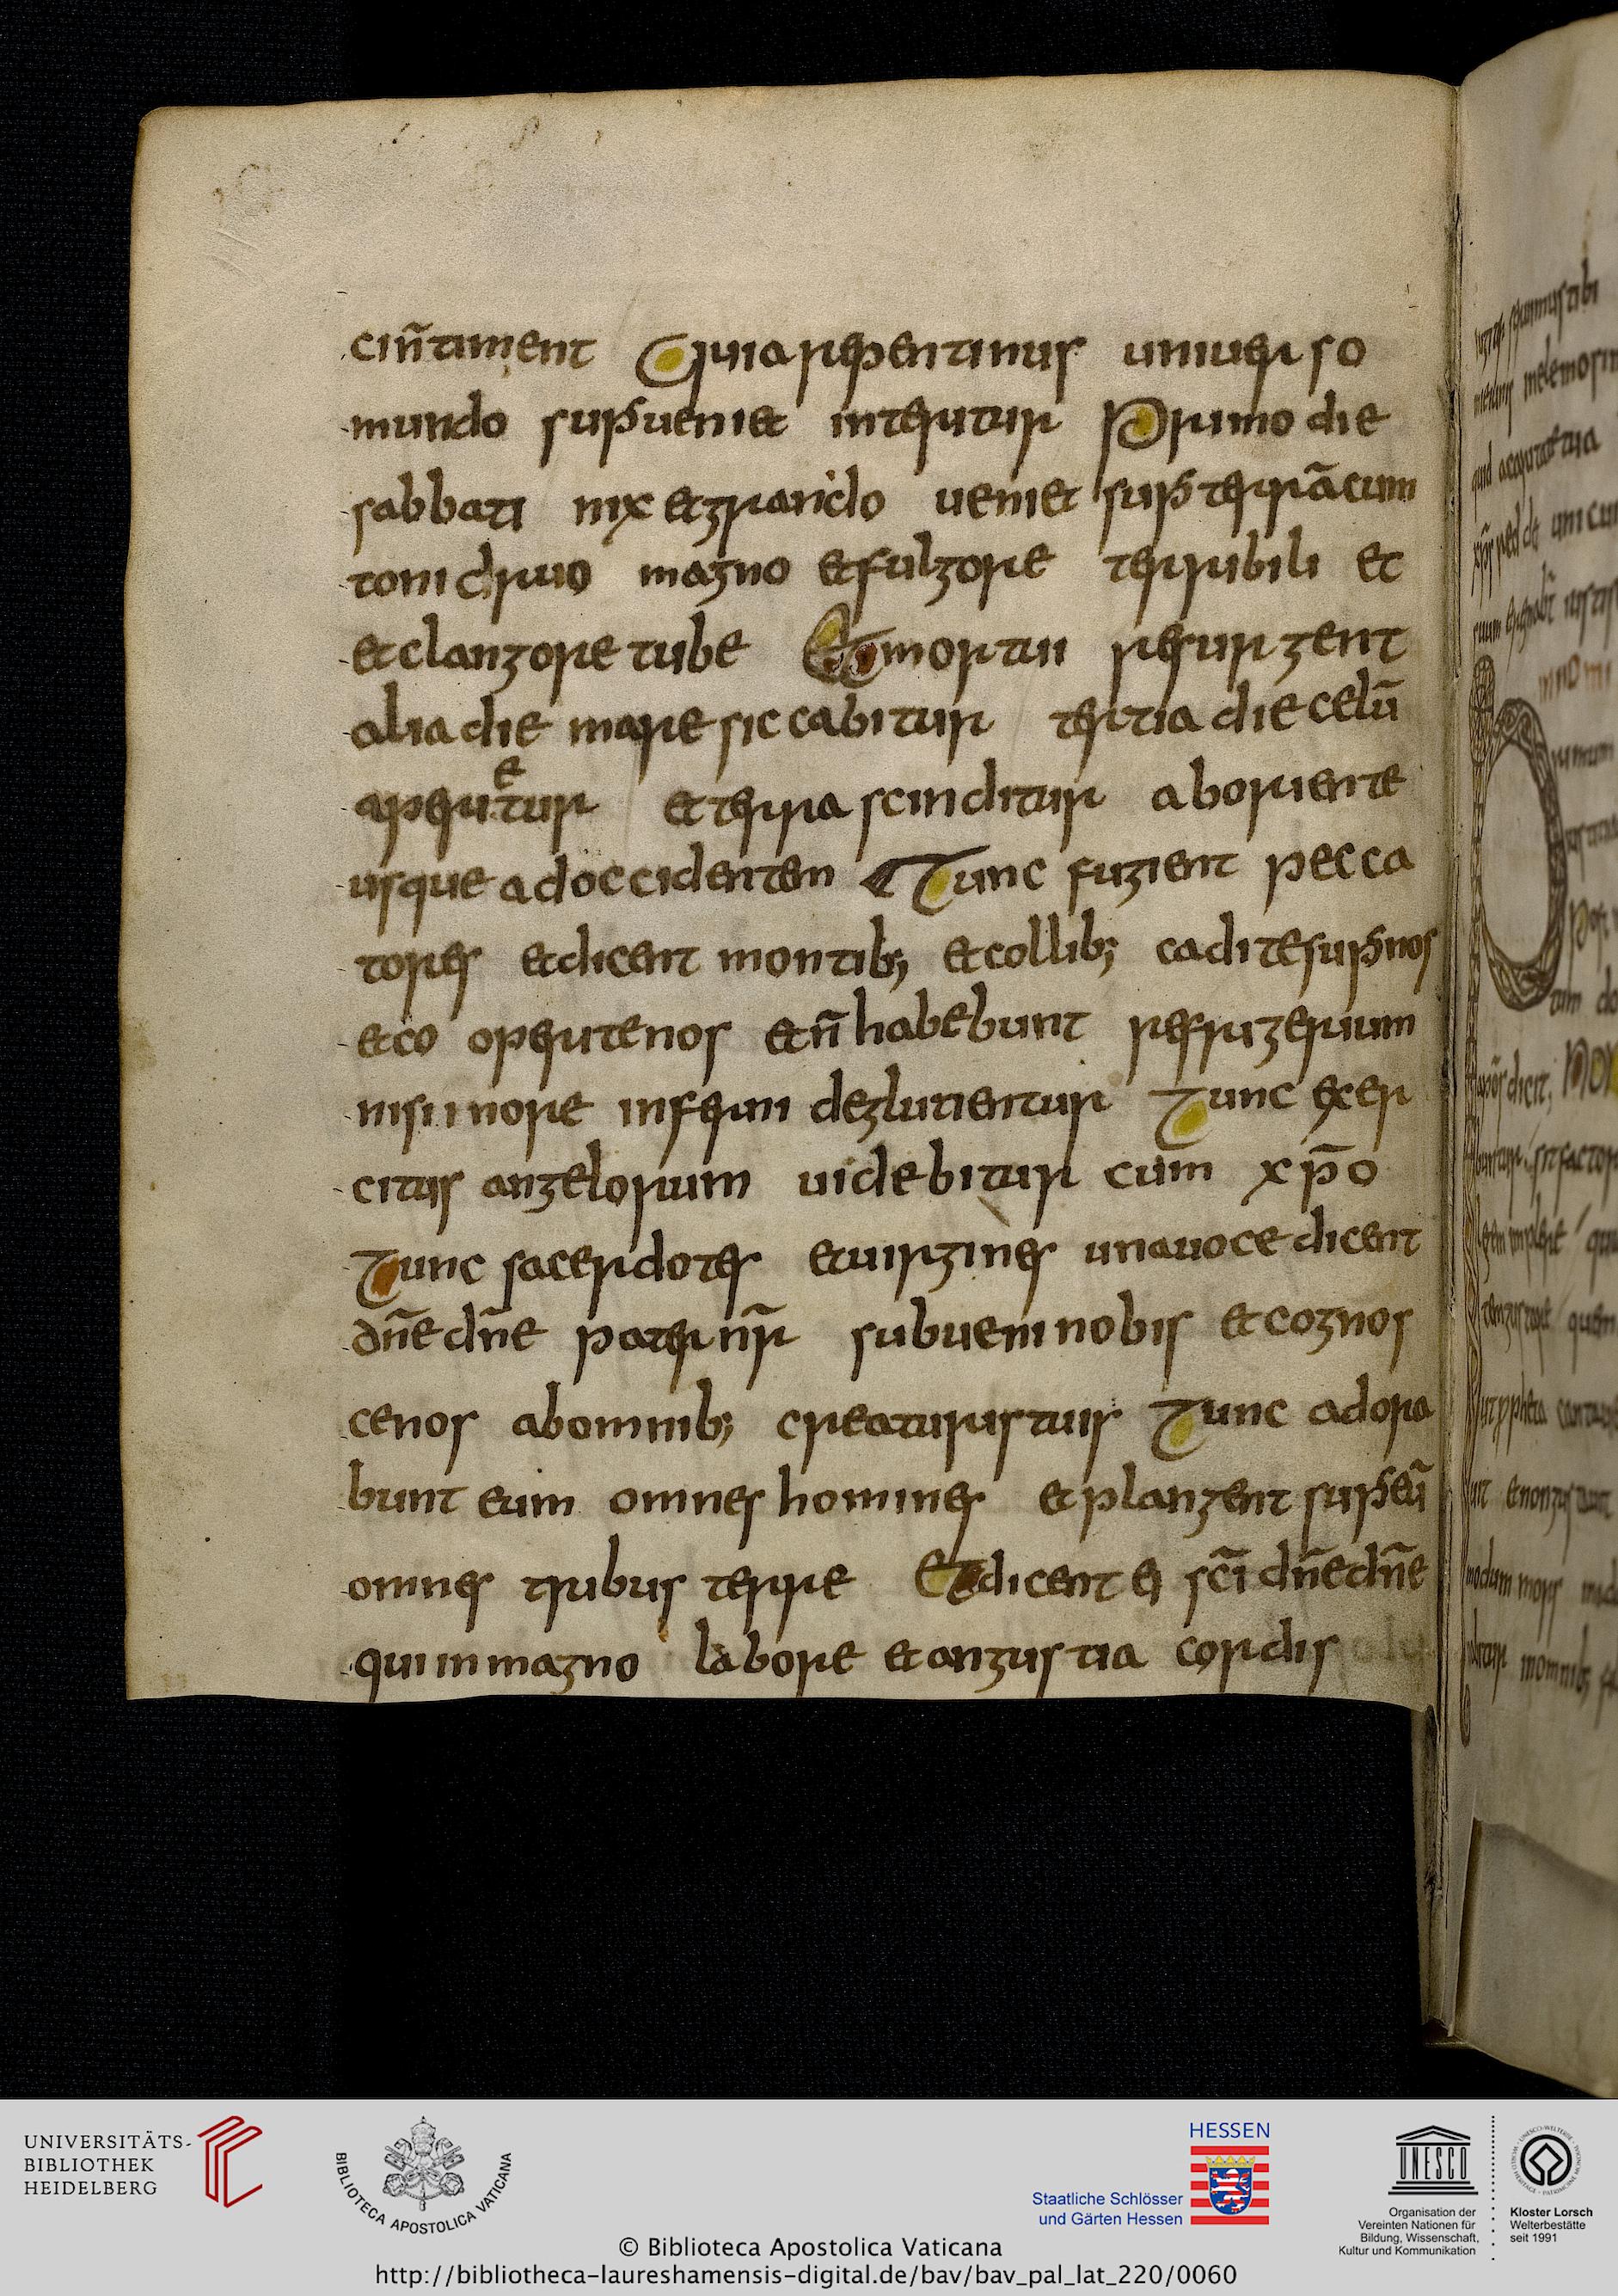 cin̄timent Quia repentinus uniuerso
mundo sup̄ueniet interitur Primo die
sabbati nix etgrando ueniet sup̄ terrācum
tonidruo magno etfulgore terribili et
etclangore tube Etmortui resurgent
alia die mare siccabitur tertia die celū
aperietur et terra scinditur aboriente
usque adoccidentem Tunc fugient pecca
tores etdicent montib; etcollib; caditesup̄nos
etco operitenos etn̄ habebunt refrigerium
nisi inore inferni deglutientur Tunc exer
citus angelorum uidebitur cum xp̄o
Tunc sacerdotes etuirgines unauoce dicent
dn̄e dn̄e pater nr̄ subueni nobis etcognos
cenos abomnib; creaturistuis Tunc adora
bunt eum omnes homines etplangent sup̄eū
omnes tribus terre Etdicent ei sc̄i dn̄edn̄e
quiinmagno labore etangustia cordis
UNIVERSITÄTS-
BIBLIOTHEK
HEIDELBERG
BIBLIOTECA APOSTOLICA VATICANA
HESSEN
Staatliche Schlösser
und Gärten Hessen
UNESCO
Organisation der
Vereinten Nationen für
Bildung, Wissenschaft,
Kultur und Kommunikation
Kloster Lorsch
Welterbestätte
seit 1991
© Biblioteca Apostolica Vaticana
http://bibliotheca-laureshamensis-digital.de/bav/bav_pal_lat_220/0060